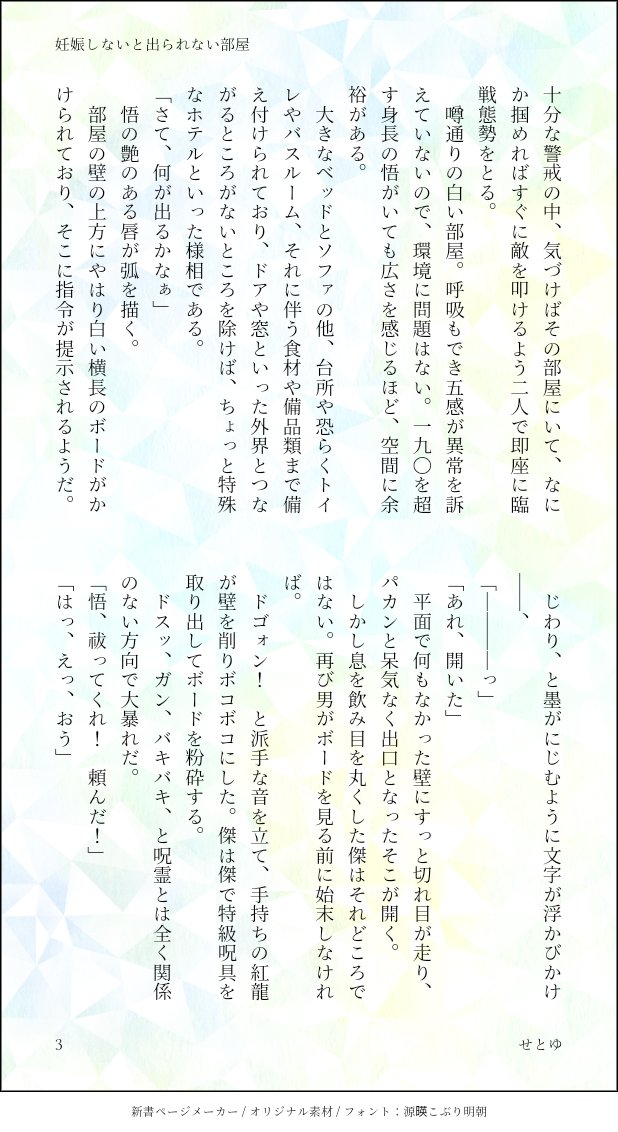 妊娠しないと出られない部屋
十分な警戒の中、気づけばその部屋にいて、なに
か掴めればすぐに敵を叩けるよう二人で即座に臨
戦態勢をとる。
噂通りの白い部屋。呼吸もでき五感が異常を訴
えていないので、環境に問題はない。一九〇を超
す身長の悟がいても広さを感じるほど、空間に余
裕がある。
大きなベッドとソファの他、台所や恐らくトイ
レやバスルーム、それに伴う食材や備品類まで備
え付けられており、ドアや窓といった外界とつな
がるところがないところを除けば、ちょっと特殊
なホテルといった様相である。
「さて、何が出るかなぁ」
悟の艶のある唇が弧を描く。
部屋の壁の上方にやはり白い横長のボードがか
けられており、そこに指令が提示されるようだ。
じわり、と墨がにじむように文字が浮かびかけ
――、
「――――っ」
「あれ、開いた」
平面で何もなかった壁にすっと切れ目が走り、
パカンと呆気なく出口となったそこが開く。
しかし息を飲み目を丸くした傑はそれどころで
はない。再び男がボードを見る前に始末しなけれ
ば。
ドゴォン！　と派手な音を立て、手持ちの紅龍
が壁を削りボコボコにした。傑は傑で特級呪具を
取り出してボードを粉砕する。
ドスッ、ガン、バキバキ、と呪霊とは全く関係
のない方向で大暴れだ。
「悟、祓ってくれ！　頼んだ！」
「はっ、えっ、おう」
3
せとゆ
新書ページメーカー / オリジナル素材 / フォント：源暎こぶり明朝